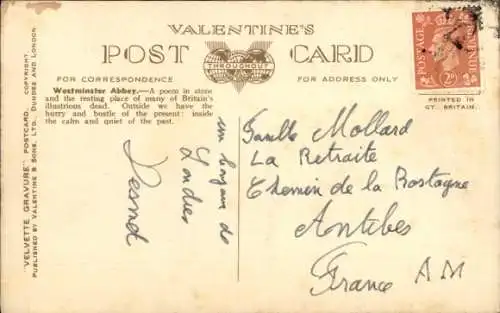 VALENTINE'S
POST CARD
THROUGHOUT
FOR CORRESPONDENCE
FOR ADDRESS ONLY
Westminster Abbey.—A poem in stone
and the resting place of many of Britain's
illustrious dead. Outside we have the
hurry and bustle of the present: inside
the calm and quiet of the past.
"VELVETTE GRAVURE" POSTCARD. COPYRIGHT.
PUBLISHED BY VALENTINE & SONS, LTD., DUNDEE AND LONDON.
un
de
Londres
POSTAGE
REVENUE
2D
PRINTED IN
GT. BRITAIN.
Mollard
La Retraite
Chemin de la Rostagne
Antibes
France AM